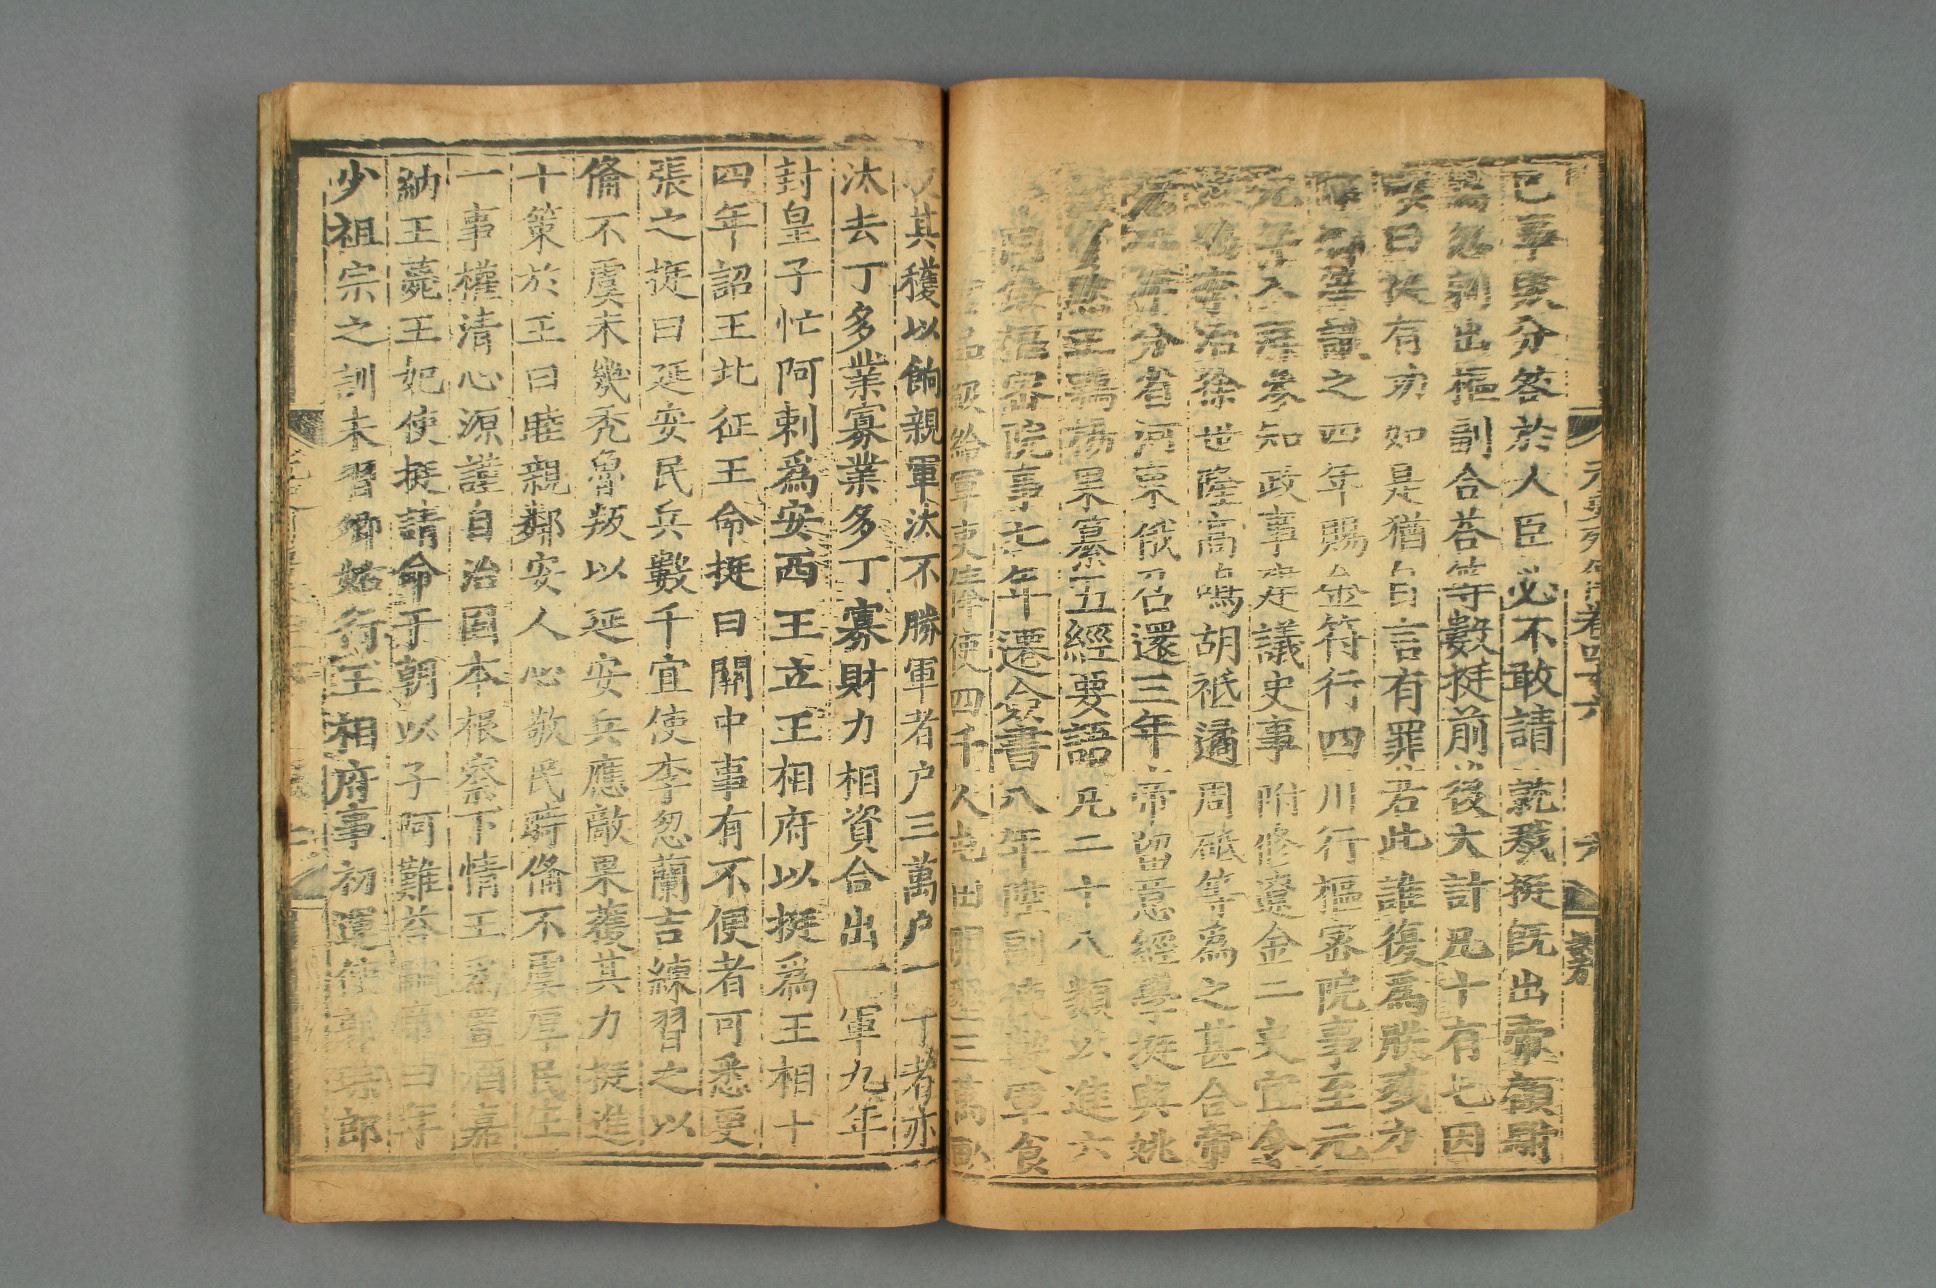 元史列傳卷四十六
六
己事衆分答於人臣必不敢請就戮挺旣出帝顧駙
馬忽剌出樞副合荅等數挺前後大計凡十有七因
嘆曰挺有功如是猶自言有罪若此誰復爲朕戮力
卿等識之四年賜金符行四川行樞密院事至元
元年入拜參知政事建議史事附修遼金二史宜令
王鶚李冶徐世隆高鳴胡祗遹周砥等爲之甚合帝
意二年分省河東俄召還三年帝留意經學挺與姚
樞竇默王鶚楊果纂五經要語凡二十八類以進六
同僉樞密院事七年遷僉書八年陞副使數軍食
品級給軍吏俸使四千人屯田開墾三萬畝
收其穫以餉親軍汰不勝軍者户三萬户一丁者亦
汰去丁多業寡業多丁寡財力相資合出一軍九年
封皇子忙阿剌爲安西王立王相府以挺爲王相十
四年詔王北征王命挺曰關中事有不便者可悉更
張之挺曰延安民兵數千宜使李忽蘭吉練習之以
俻不虞未幾禿魯叛以延安兵應敵果獲其力挺進
十策於王曰睦親鄰安人心敬民時俻不虞厚民生
一事權清心源謹自治固本根察下情王爲置酒嘉
納王薨王妃使挺請命于朝以子阿難荅嗣帝曰年
少祖宗之訓未習卿姑行王相府事初運使郭琮郎